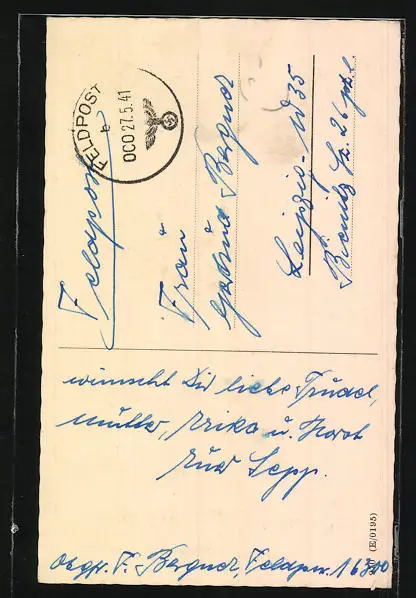 FELDPOST
b
000 27.5.41
Feldpost
Frau
Gertrud Bergner
Leipzig-W 35
Bienitz Str. 26 ptr. l.
wünscht Dir liebe Trudel,
Mutter, Erika u. Horst
Euer Sepp.
Obgfr. F. Bergner, Feldpnr. 16300
(E/0195)